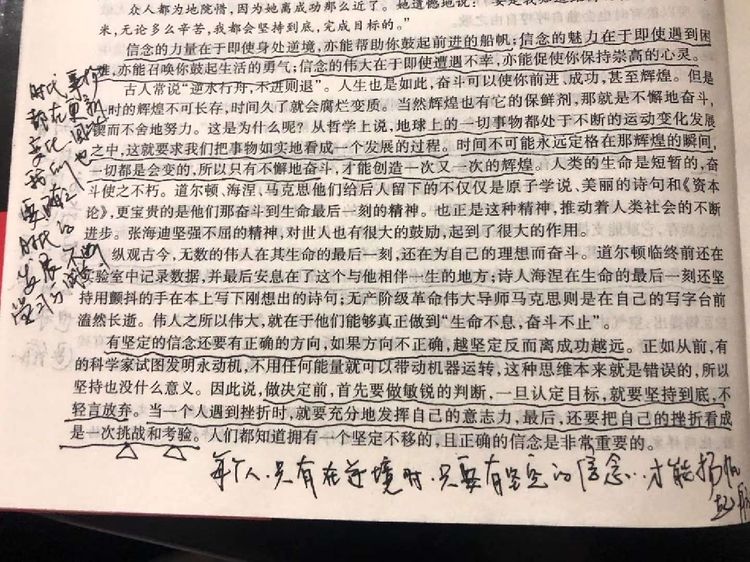 众人都为她院惜,因为她离成功那么近了。她遗憾地说:
米,无论多么辛苦,我都会坚持到底,完成目标的。”
信念的力量在于即使身处逆境,亦能帮助你鼓起前进的船帆;信念的魅力在于即使遇到困
难,亦能召唤你鼓起生活的勇气;信念的伟大在于即使遭遇不幸,亦能促使你保持崇高的心灵。
古人常说“逆水行舟,不进则退”。人生也是如此,奋斗可以使你前进、成功,甚至辉煌。但是
时的辉煌不可长存,时间久了就会腐烂变质。当然辉煌也有它的保鲜剂,那就是不懈地奋斗,
锲而不舍地努力。这是为什么呢?从哲学上说,地球上的一切事物都处于不断的运动变化发展
之中,这就要求我们把事物如实地看成一个发展的过程。时间不可能永远定格在那辉煌的瞬间,
一切都是会变的,所以只有不懈地奋斗,才能创造一次又一次的辉煌。人类的生命是短暂的,奋
斗使之不朽。道尔顿、海涅、马克思他们给后人留下的不仅仅是原子学说、美丽的诗句和《资本
论》,更宝贵的是他们那奋斗到生命最后一刻的精神。也正是这种精神,推动着人类社会的不断
进步。张海迪坚强不屈的精神,对世人也有很大的鼓励,起到了很大的作用。
纵观古今,无数的伟人在其生命的最后一刻,还在为自己的理想而奋斗。道尔顿临终前还在
实验室中记录数据,并最后安息在了这个与他相伴一生的地方;诗人海涅在生命的最后一刻还坚
持用颤抖的手在本上写下刚想出的诗句;无产阶级革命伟大导师马克思则是在自己的写字台前
溘然长逝。伟人之所以伟大,就在于他们能够真正做到“生命不息,奋斗不止”。
有坚定的信念还要有正确的方向,如果方向不正确,越坚定反而离成功越远。正如从前,有
的科学家试图发明永动机,不用任何能量就可以带动机器运转,这种思维本来就是错误的,所以
坚持也没什么意义。因此说,做决定前,首先要做敏锐的判断,一旦认定目标,就要坚持到底,不
轻言放弃。当一个人遇到挫折时,就要充分地发挥自己的意志力,最后,还要把自己的挫折看成
是一次挑战和考验。人们都知道拥有一个坚定不移的,且正确的信念是非常重要的。
每个人,只有在逆境时,只要有坚定的信念,才能扬帆
起航
时代
都在更
变化
我们
要
时代的
发展
学习